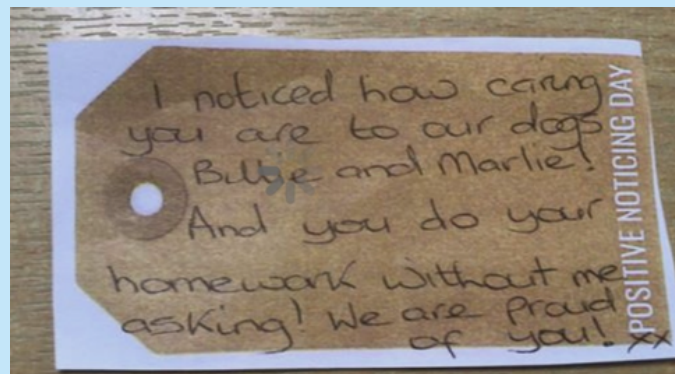 I noticed how caring
you are to our dogs
Billie and Marlie!
And you do your
homework without me
asking! We are proud
of you! xx
POSITIVE NOTICING DAY